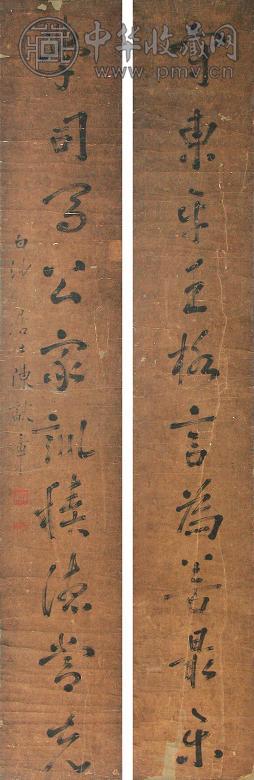 中华收藏网
www.pmv.cn
東平王格言為善最樂
司馬公家訓積德當先
白沙居士陳獻章